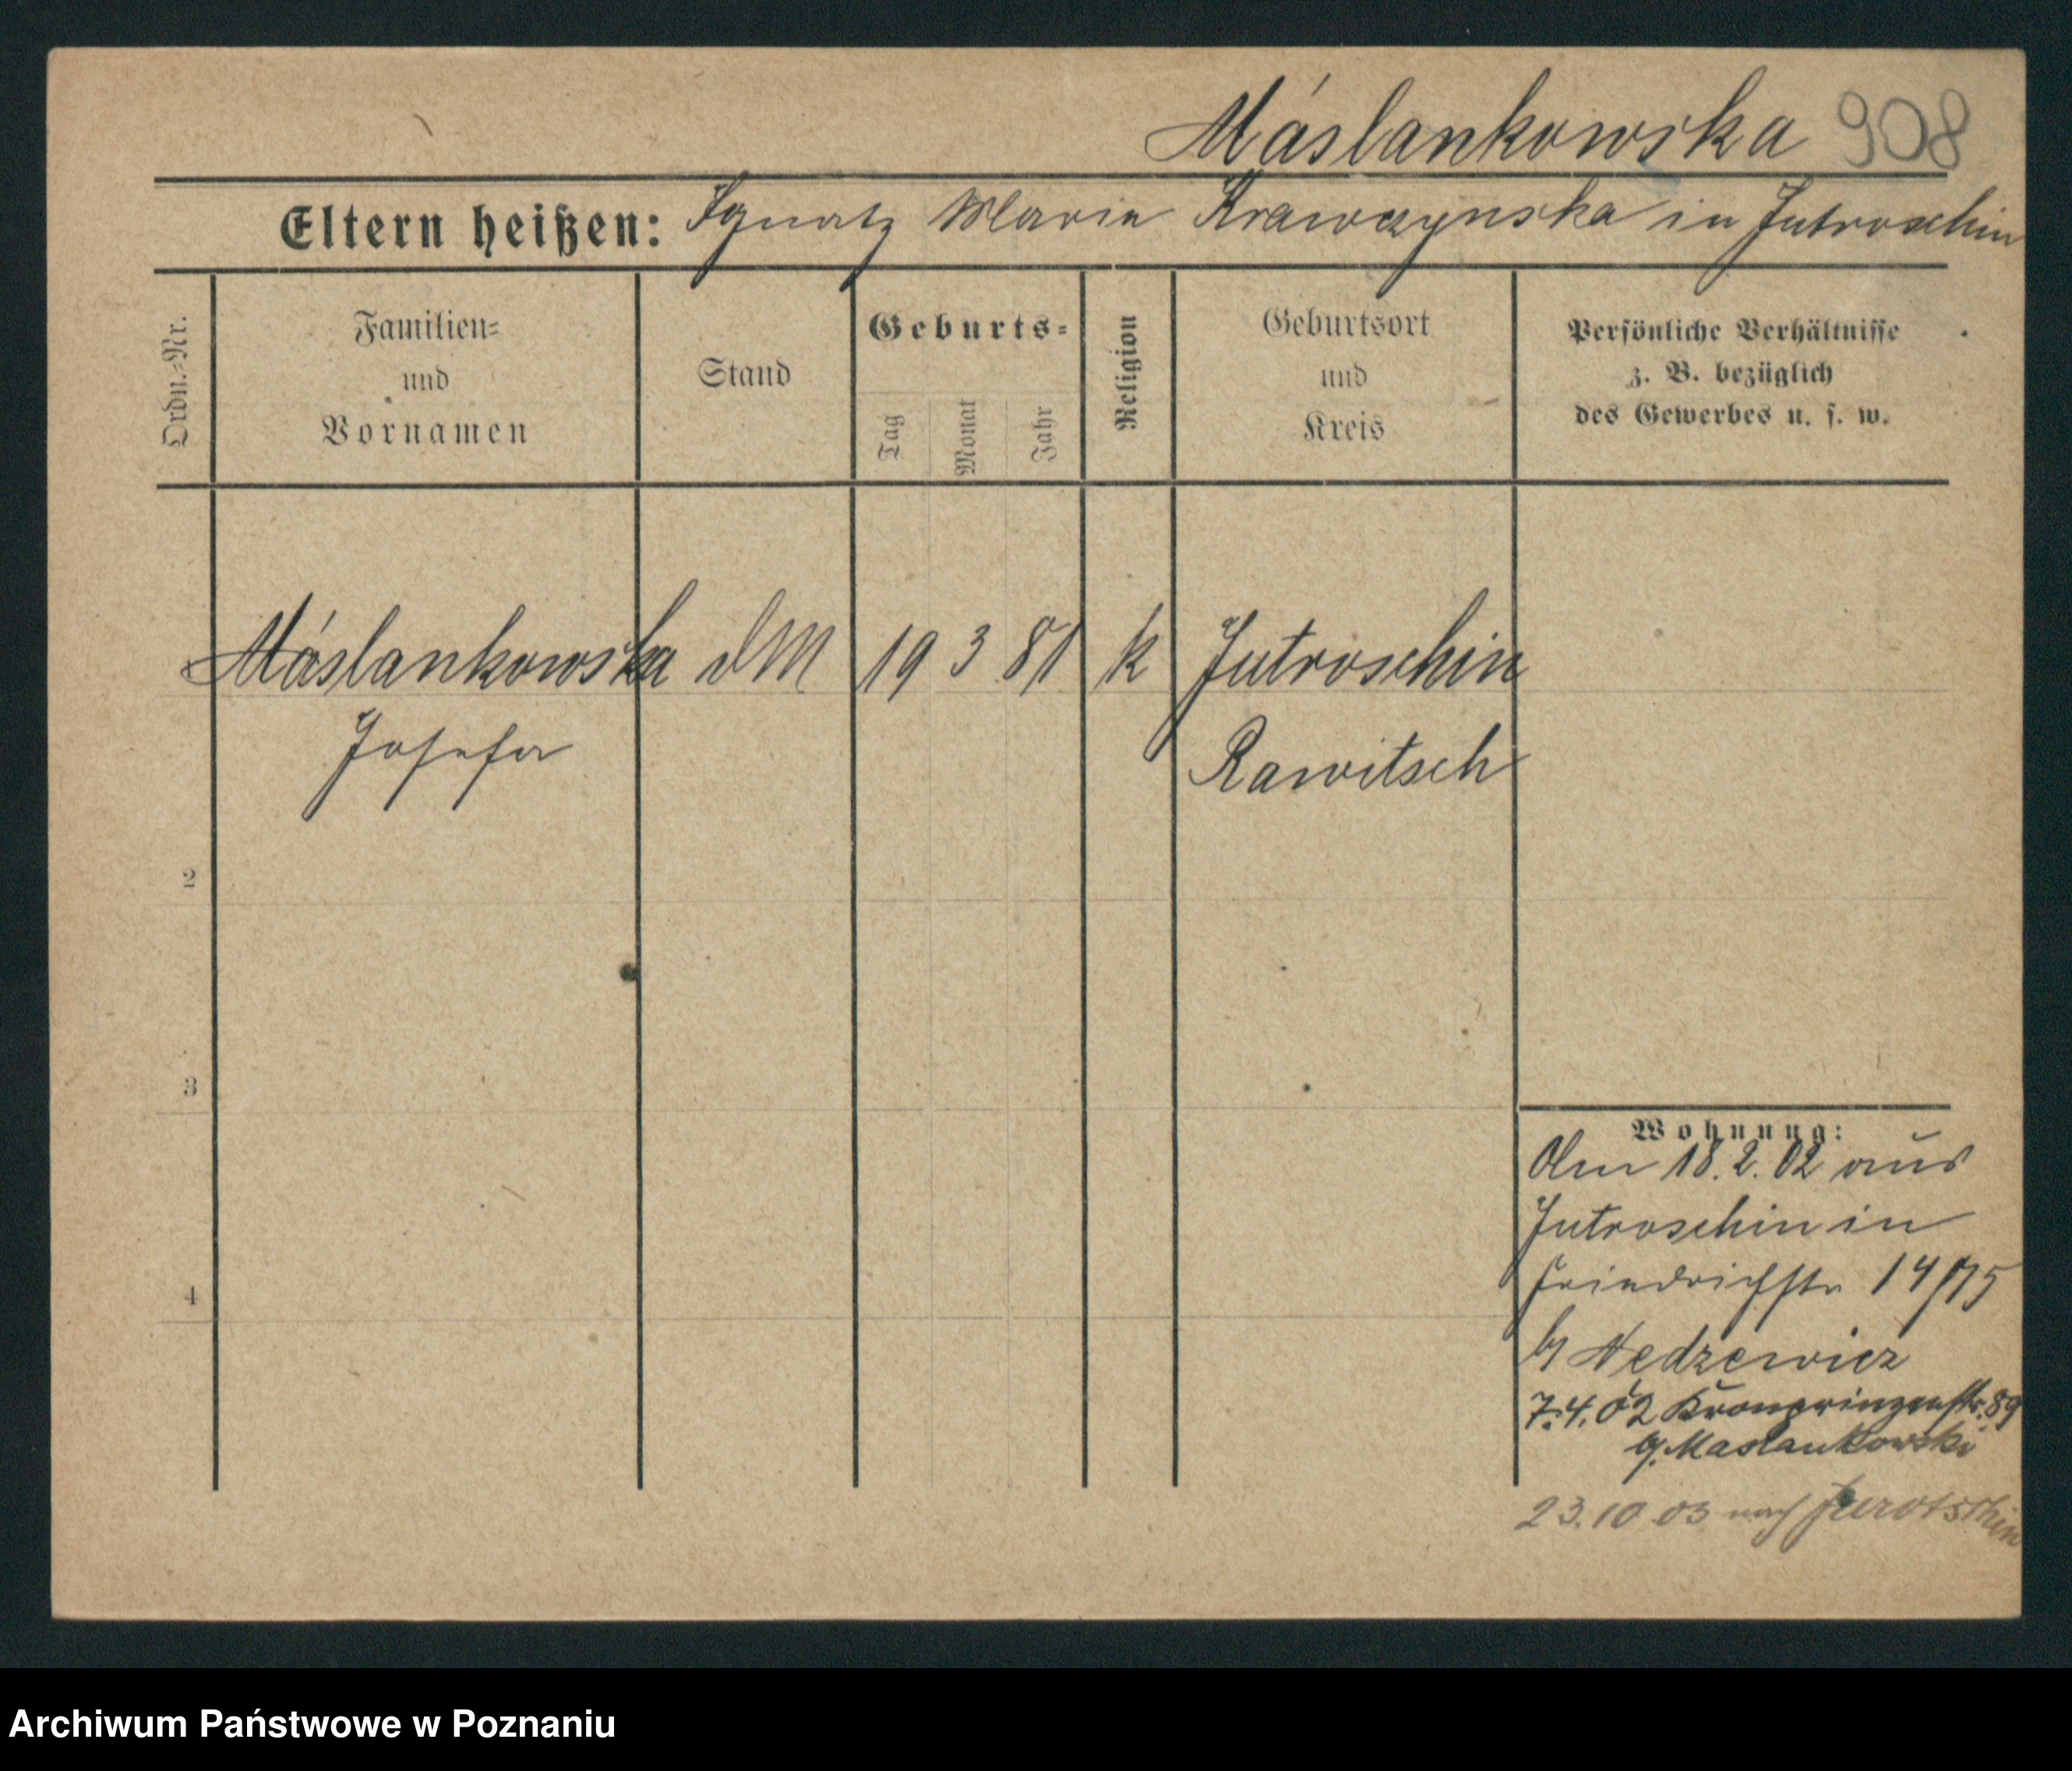 Máslankowska 908
Eltern heißen: Ignatz Marie Krawczynska in Jutroschin
Ordn.-Nr.
Familien-
und
Vornamen
Stand
Geburts-
Tag
Monat
Jahr
Religion
Geburtsort
und
Kreis
Persönliche Verhältnisse
z. B. bezüglich
des Gewerbes u. s. w.
Máslankowska DM 19 3 81 k Jutroschin
Josefa Rawitsch
2
3
4
Wohnung:
Am 18.2.02 aus
Jutroschin in
Friedrichstr
b/ Nedzewicz
7.4.02 Kronprinzenstr. 89
b/. Maslankowski
23.10 03 nach
Archiwum Państwowe w Poznaniu